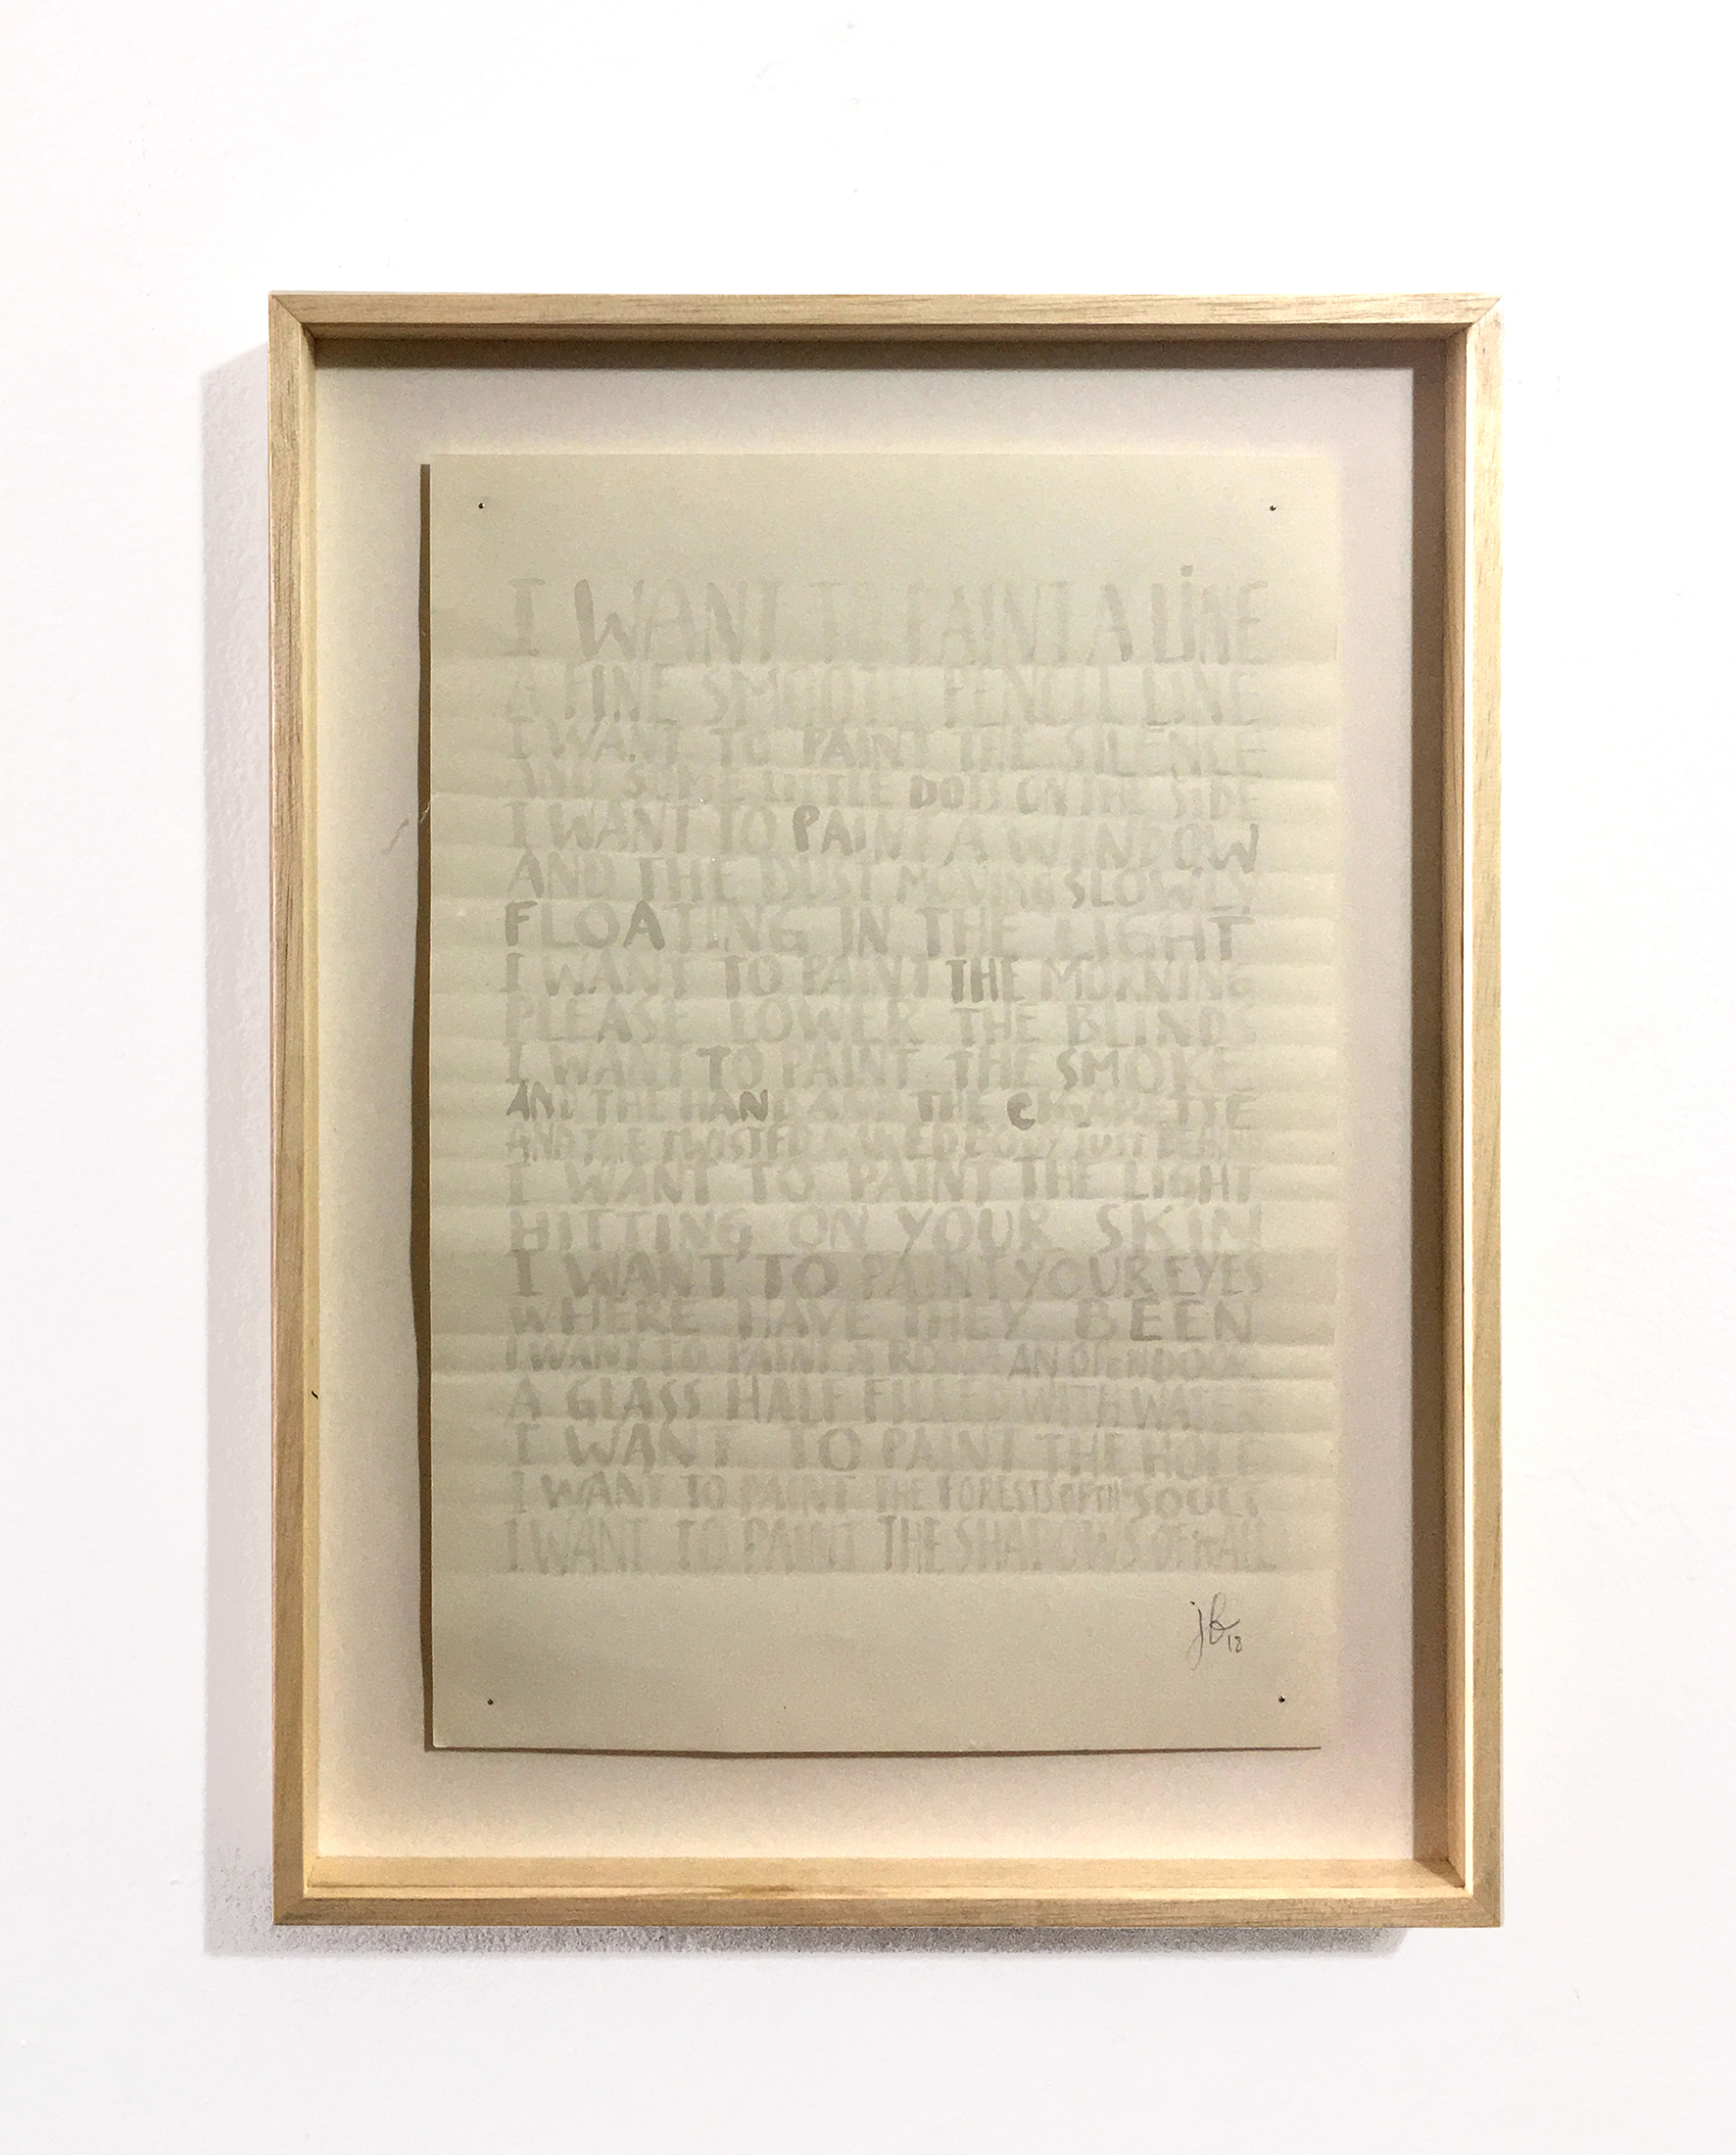 I WANT TO PAINT A LiNE
A FINE SMOOTH PENCIL LINE
I WANT TO PAINT THE SILENCE
AND SOME LITTLE DOTS ON THE SIDE
I WANT TO PAINT A WINDOW
AND THE DUST MOVING SLOWLY
FLOATING IN THE LIGHT
I WANT TO PAINT THE MORNING
PLEASE LOWER THE BLINDS
I WANT TO PAINT THE SMOKE
AND THE HAND AND THE CIGARETTE
AND THE TWISTED NAKED BODY JUST
I WANT TO PAINT THE LIGHT
HITTING ON YOUR SKIN
I WANT TO PAINT YOUR EYES
WHERE HAVE THEY BEEN
I WANT TO PAINT A AN OPEN DOOR
A GLASS HALF FILLED WITH WATER
I WANT TO PAINT THE HOLE
I WANT TO PAINT THE FORESTS OF THE SOULS
I WANT TO PAINT THE SHADOWS OF
jb 18